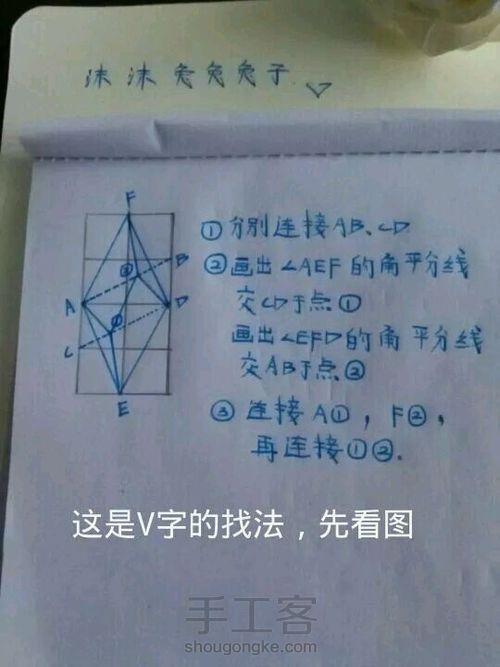 沫沫兔兔兔子
F
B
A
D
C
E
①
②
①分别连接AB、CD
②画出∠AEF的角平分线
交CD于点①
画出∠EFD的角平分线
交AB于点②
③连接A①,F②,
再连接①②.
这是V字的找法，先看图
手工客
shougongke.com